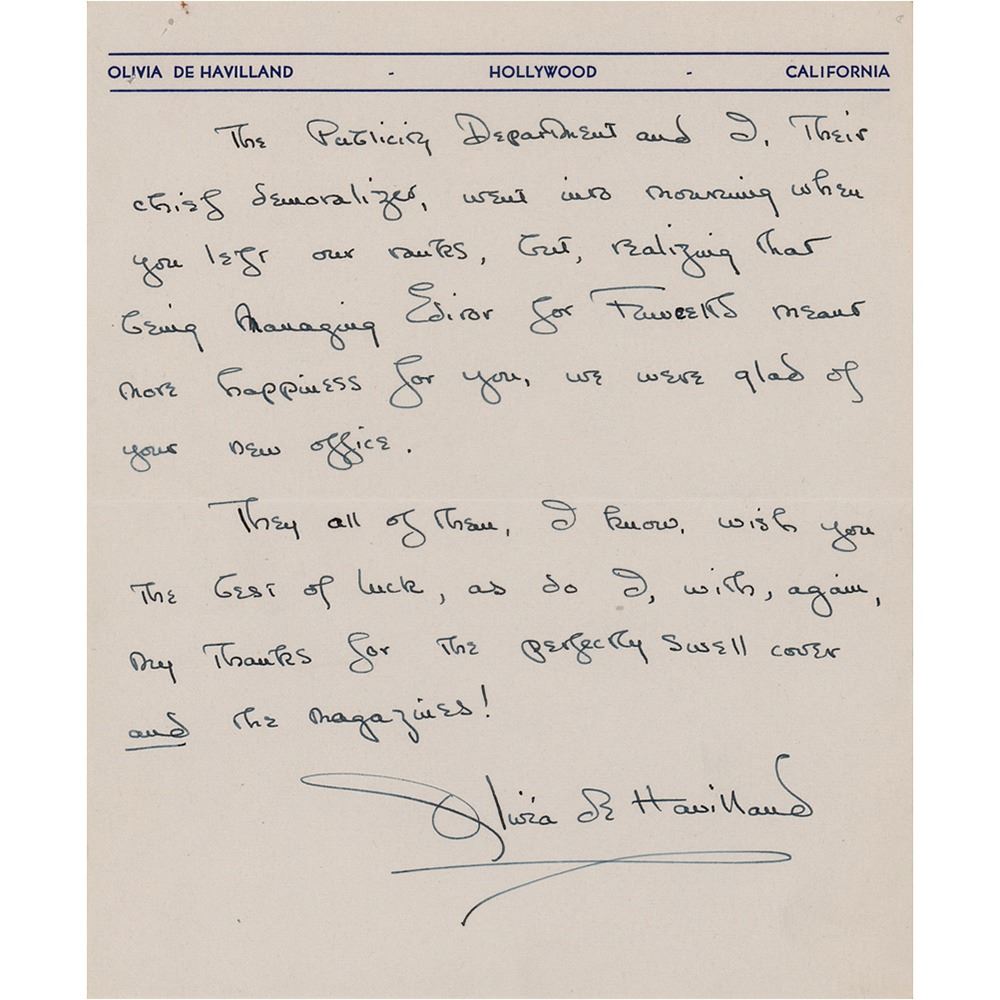 OLIVIA DE HAVILLAND - HOLLYWOOD - CALIFORNIA
The Publicity Department and I, their
chief demoralizer, went into mourning when
you left our ranks, but, realizing that
being Managing Editor for Fawcetts meant
more happiness for you, we were glad of
your new office.
They all of them, I know, wish you
the best of luck, as do I, with, again,
my thanks for the perfectly swell cover
and the magazines!
Olivia de Havilland